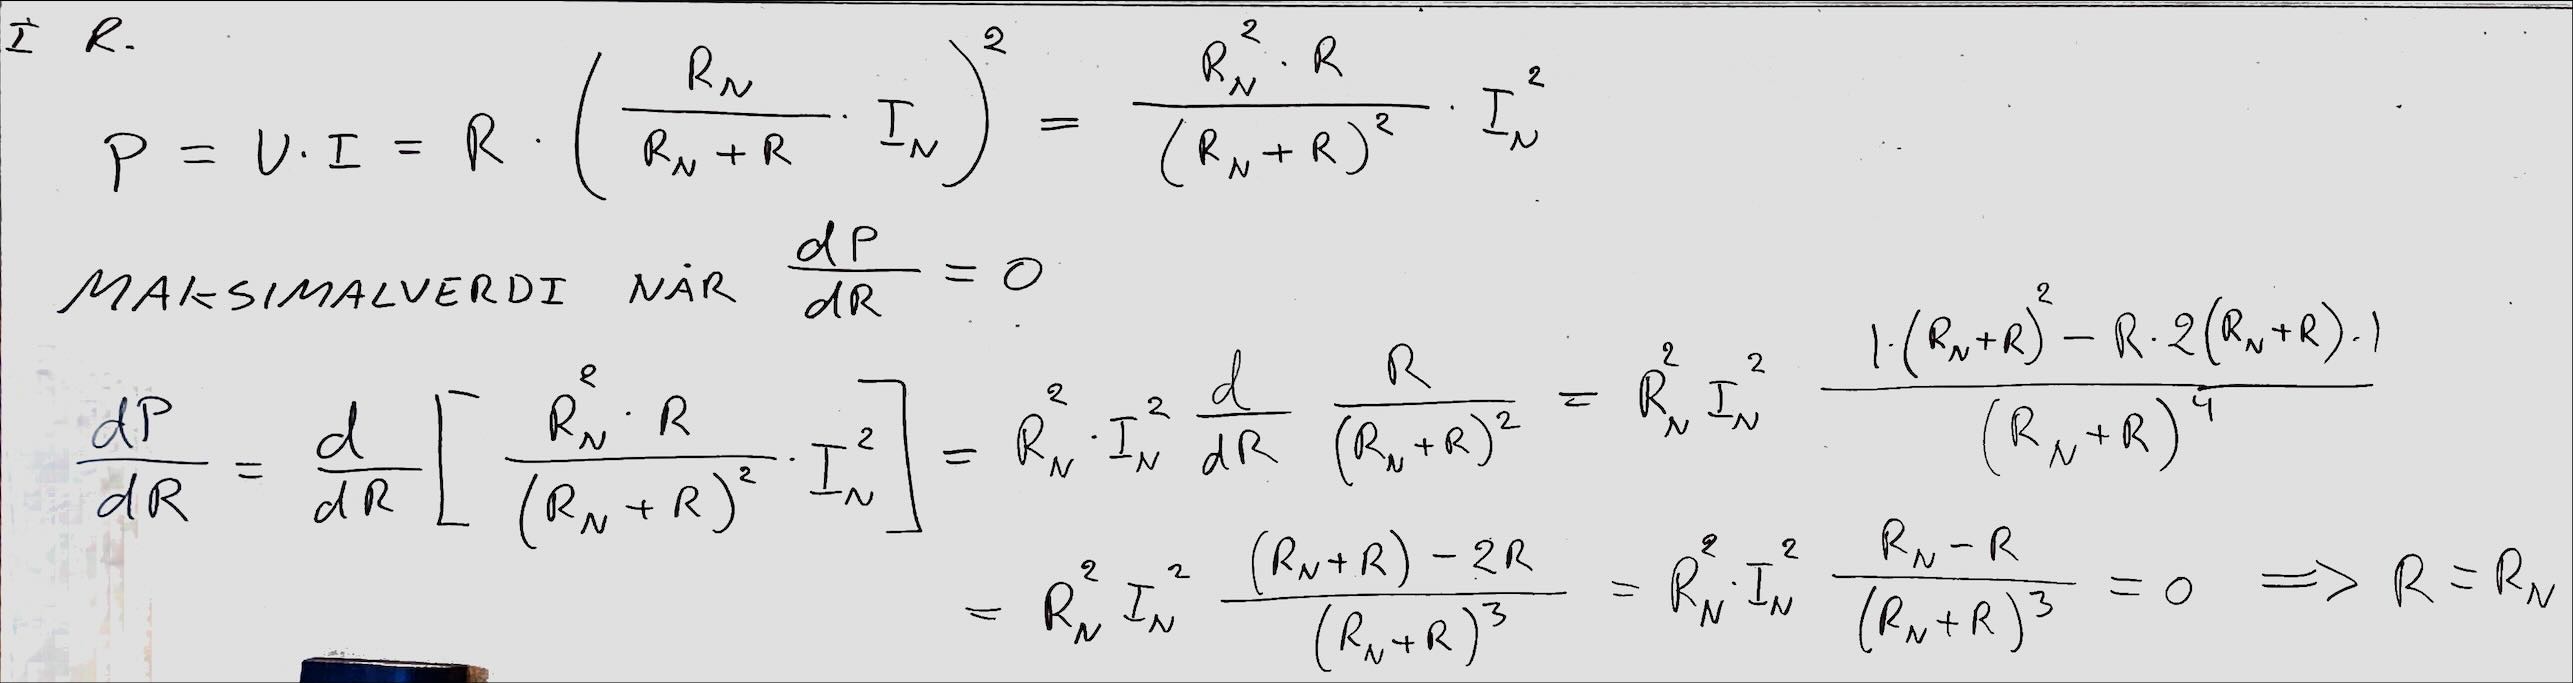 I R.
P = U·I = R · ( R_N / (R_N + R) · I_N )² = R_N² · R / (R_N + R)² · I_N²
MAKSIMALVERDI NÅR dP/dR = 0
dP/dR = d/dR [ R_N² · R / (R_N + R)² · I_N² ] = R_N² · I_N² d/dR R / (R_N + R)² = R_N² I_N² (1·(R_N + R)² − R·2(R_N + R)·1) / (R_N + R)⁴
= R_N² I_N² ((R_N + R) − 2R) / (R_N + R)³ = R_N² · I_N² (R_N − R) / (R_N + R)³ = 0 ⟹ R = R_N